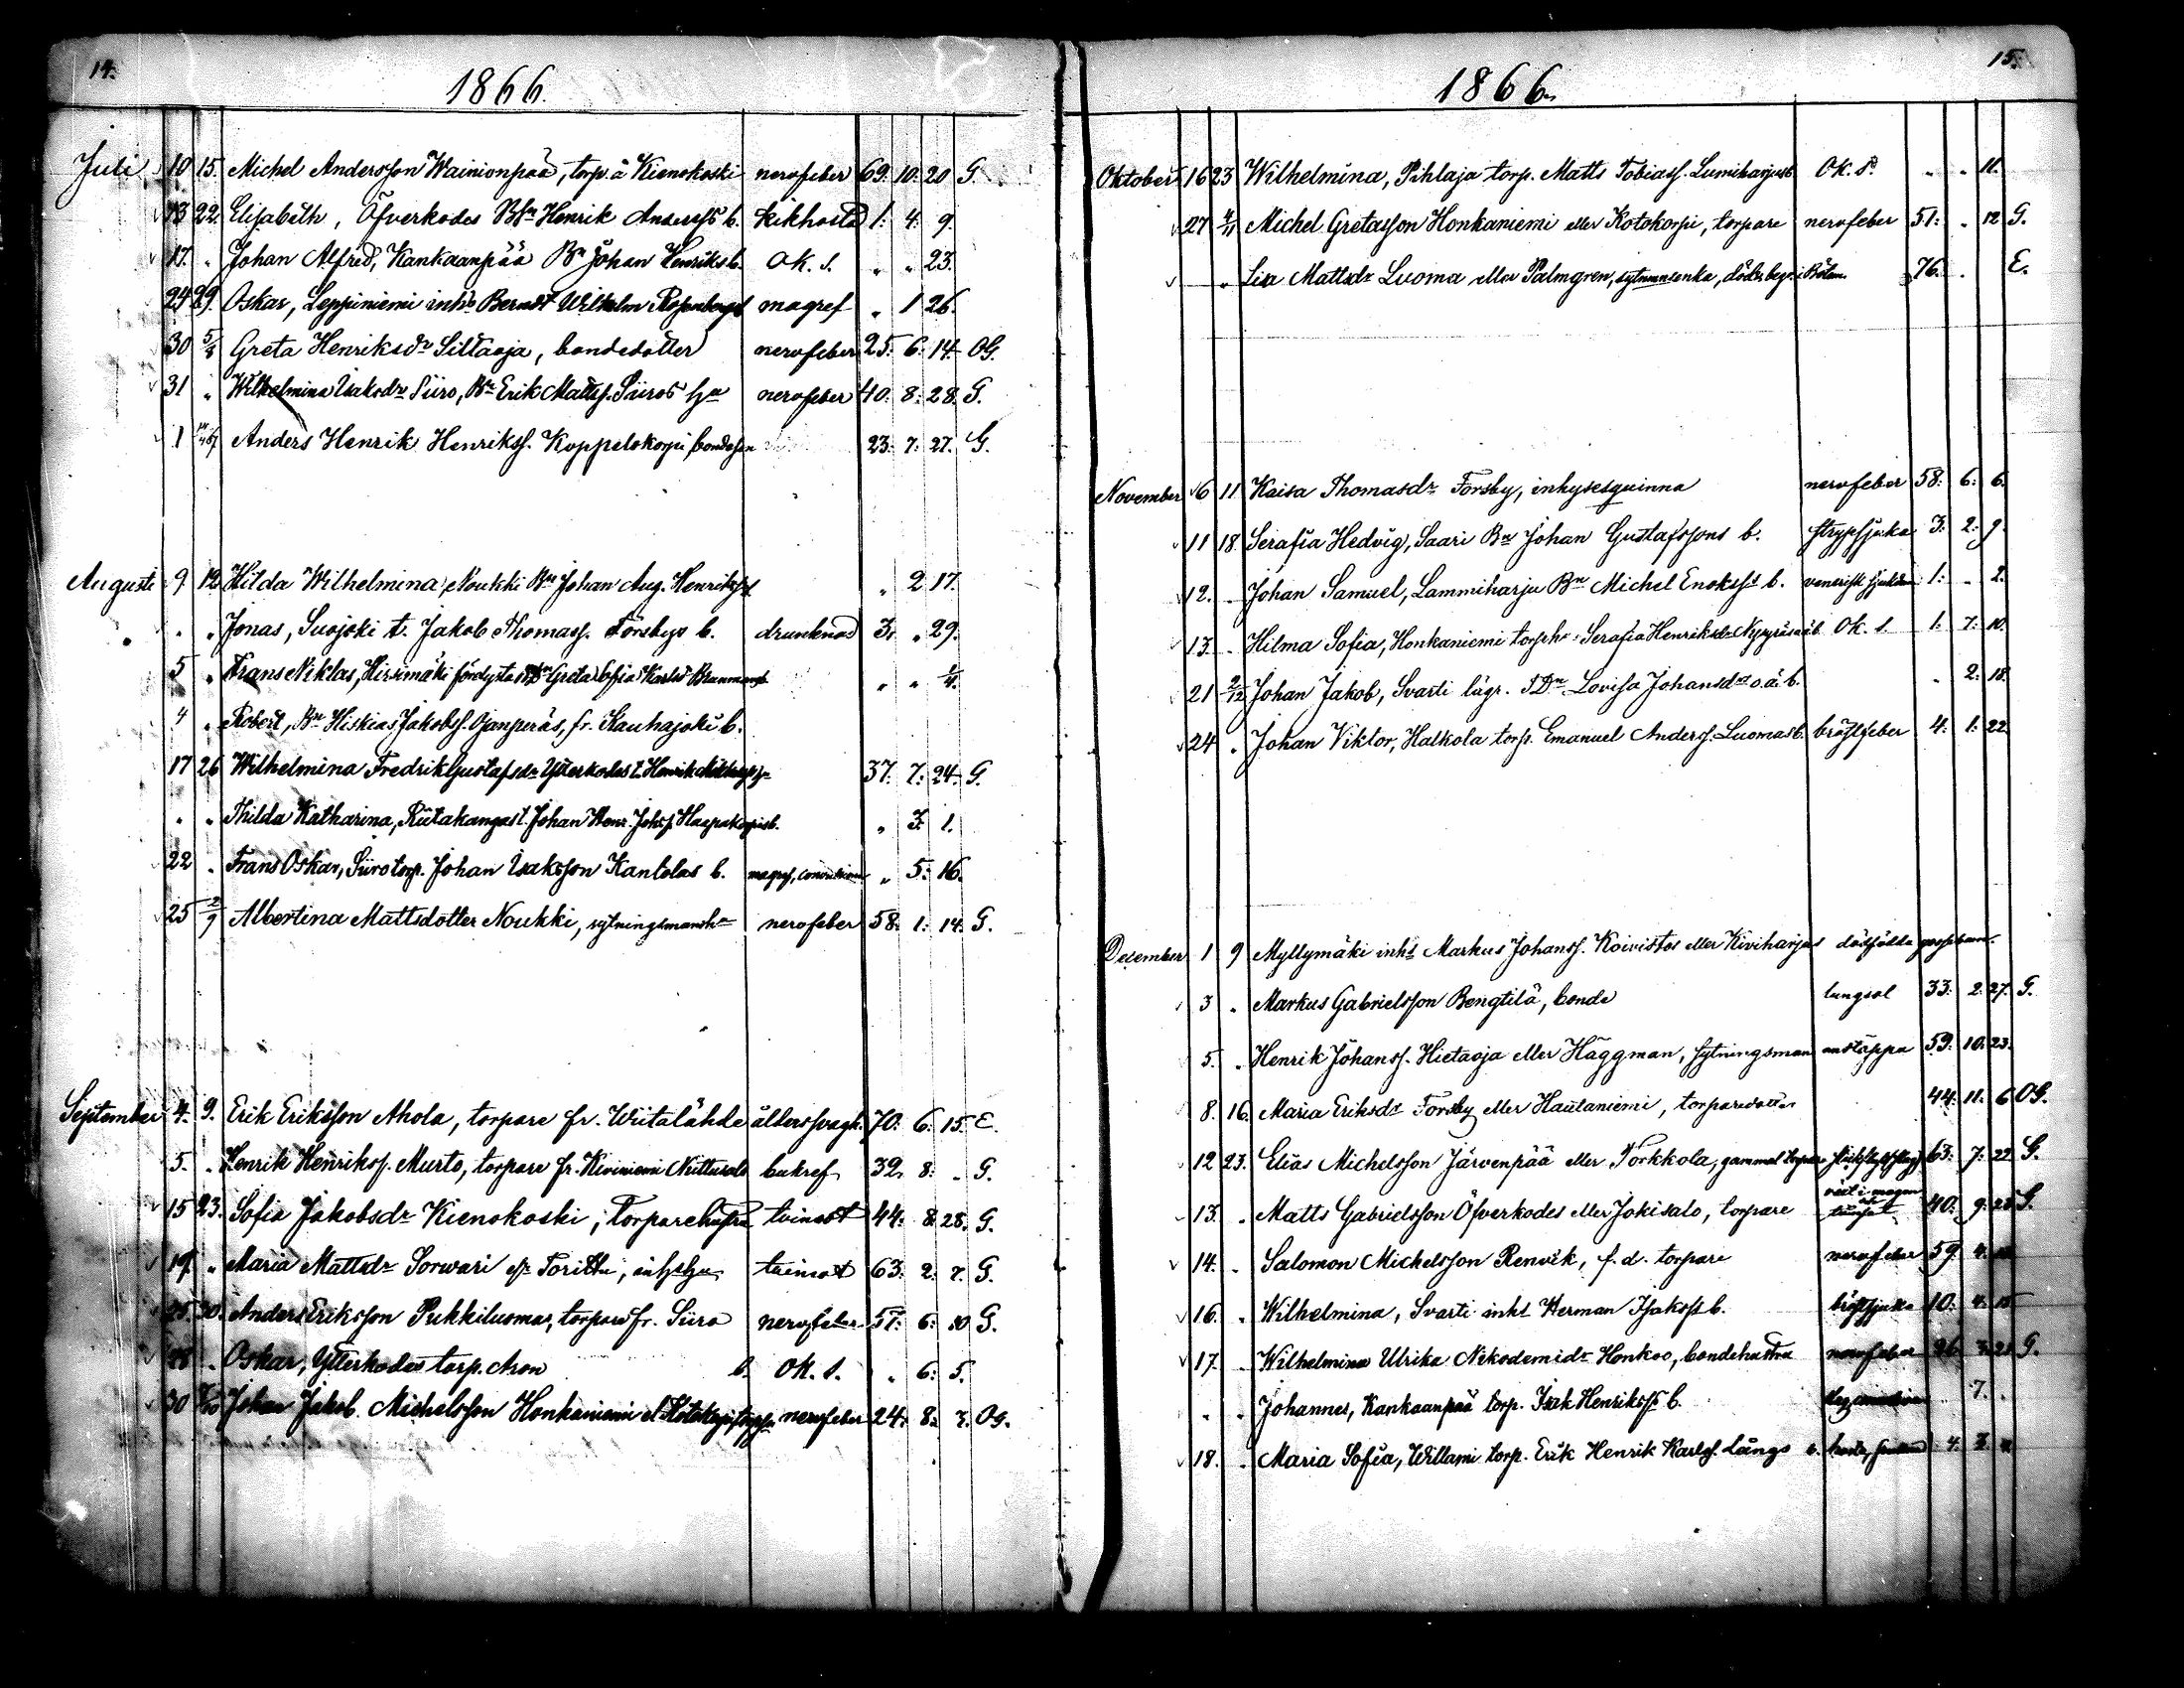 14.
1866.
Juli 10 15. Michel Andersson Wainionpää, torp. å Kienokoski nervfeber 69. 10. 20 G.
13 22. Elisabeth, Öfverkodes Bn Henrik Anderss b. kikhosta 1: 4: 9.
17. " Johan Alfred, Kankaanpää Bn Johan Henriks b. Ok. s. " " 23.
24 29. Oskar, Leppiniemi inhs Berndt Wilhelm magref " 1 26.
30 5/8 Greta Henriksdr Siltaoja, bondedotter nervfeber 25: 6: 14 OG.
31 " Wilhelmina Isaksdr Siiro, Bn Erik Matts. Siiros hu nervfeber 40: 8: 28. G.
1 Anders Henrik Henrikss. Koppelokorpi bondeson 23: 7: 27. G.
Augusti 9 12 Hilda Wilhelmina, Noukki Bn Johan Aug. " 2 17.
" " Jonas, Suojoki t. Jakob Thomass. Forsbys b. drunknad 3. " 29.
5 " Frans Niklas, Hirsimäki Greta Sofia Karlsd " "
4 " Robert, Bn Hiskias Jakobss. Ojanperäs, fr. Kauhajoki b.
17 26 Wilhelmina Fredrika Gustafsdr Ytterkodes t. Henrik 37. 7: 24. G.
" " Thilda Katharina, Riitakangas t. Johan Henr. " 3. 1.
22 " Frans Oskar, Siiro torp. Johan Isaksson Kantolas b. " 5: 16.
25 2/9 Albertina Mattsdotter Noukki, sytningsmansh nervfeber 58: 1: 14. G.
September 4. 9. Erik Eriksson Ahola, torpare fr. Wiitalähde ålderssvagh. 70: 6: 15. E.
5. " Henrik Henrikss. Murto, torpare fr. Kiviniemi bukref 32, 8: " G.
15 23. Sofia Jakobsdr Kienokoski, Torparehustru tvinsot 44: 8: 28. G.
19. " Maria Mattsdr Sorwari tvinsot 63: 2: 7. G.
25. 30. Anders Eriksson Pukkiluomas, torpare fr. Siiro nervfeber 57: 6: 10 G.
28 " Oskar, Ytterkodes torp. b. Ok. s. " 6: 5.
30 Johan Jakob Michelsson Honkaniemi nervfeber 24: 8: 7. OG.
15.
1866.
Oktober 16 23 Wilhelmina, Pihlaja torp. Matts Tobiass. Lumiharjus b. Ok. s. " " 11.
27 4/11 Michel Gretasson Honkaniemi eller Kotokorpi, torpare nervfeber 51: " 12 G.
" Lisa Mattsdr Luoma eller Palmgren, 76. " E.
November 6 11 Kaisa Thomasdr Forsby, inhysesquinna nervfeber 58: 6: 6.
11 18. Serafia Hedvig, Saari Bn Johan Gustafssons b. strypsjuka 3: 2: 9.
12. " Johan Samuel, Lammiharju Bn Michel Enokss b. venerisk 1: " 2.
13. " Hilma Sofia, Honkaniemi Serafia Henriksdr b. Ok. s. 1: 7: 10.
21 2/12 Johan Jakob, Svarti lägr. Lovisa Johansdr o.ä. b. " 2: 18.
24 " Johan Viktor, Halkola torp. Emanuel Anderss. Luomas b. bröstfeber 4: 1: 22.
December 1 9 Myllymäki inhs Markus Johanss. Koivistos eller Kiviharjus dödfödda
3 " Markus Gabrielsson Bengtilä, bonde lungsot 33: 2: 27. G.
5. " Henrik Johanss. Hietaoja eller Häggman, sytningsman andtäppa 59: 10. 23.
8. 16. Maria Eriksdr Forsby eller Hautaniemi, torparedotter 44: 11: 6 OG.
12 23. Elias Michelsson Järvenpää eller Torkkola, gammal torpare 63: 7: 22 G.
13. " Matts Gabrielsson Öfverkodes eller Jokisalo, torpare värk i magen 40: 9: 23 G.
14. " Salomon Michelsson Renvik, f.d. torpare nervfeber 59 4.
16. " Wilhelmina, Svarti inhs Herman Isakss b. bröstsjuka 10: 4: 15
17. " Wilhelmina Ulrika Nikodemidr Honkoo, bondehustru nervfeber 26 21 G.
" " Johannes, Kankaanpää torp. Isak Henrikss b. 7.
18. " Maria Sofia, Willami torp. Erik Henrik Karlss. Långs b. 4. 3.